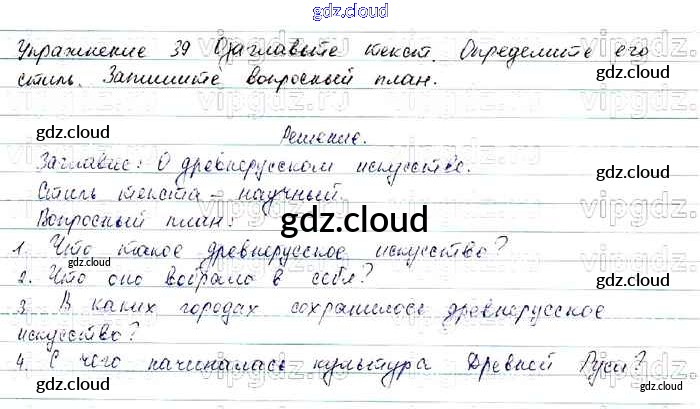 gdz.cloud
Упражнение 39 Озаглавьте текст. Определите его
стиль. Запишите вопросный план.
gdz.cloud
gdz.cloud
Решение.
Заглавие: О древнерусском искусстве.
Стиль текста – научный.
gdz.cloud
Вопросный план:
gdz.cloud
1. Что такое древнерусское искусство?
gdz.cloud
2. Что оно вобрало в себя?
gdz.cloud
3. В каких городах сохранилось древнерусское
искусство?
gdz.cloud
4. С чего начиналась культура Древней Руси?
gdz.cloud
gdz.cloud